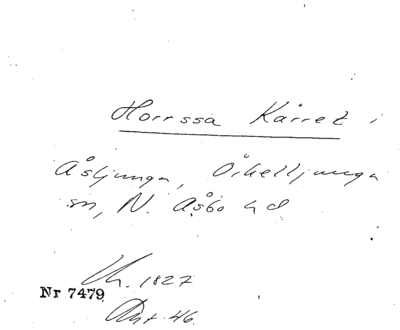 Horrssa Kärret i
Åsljunga, Örkelljunga
sn, N. Åsbo hd
1827
Nr 7479
Akt. 46.